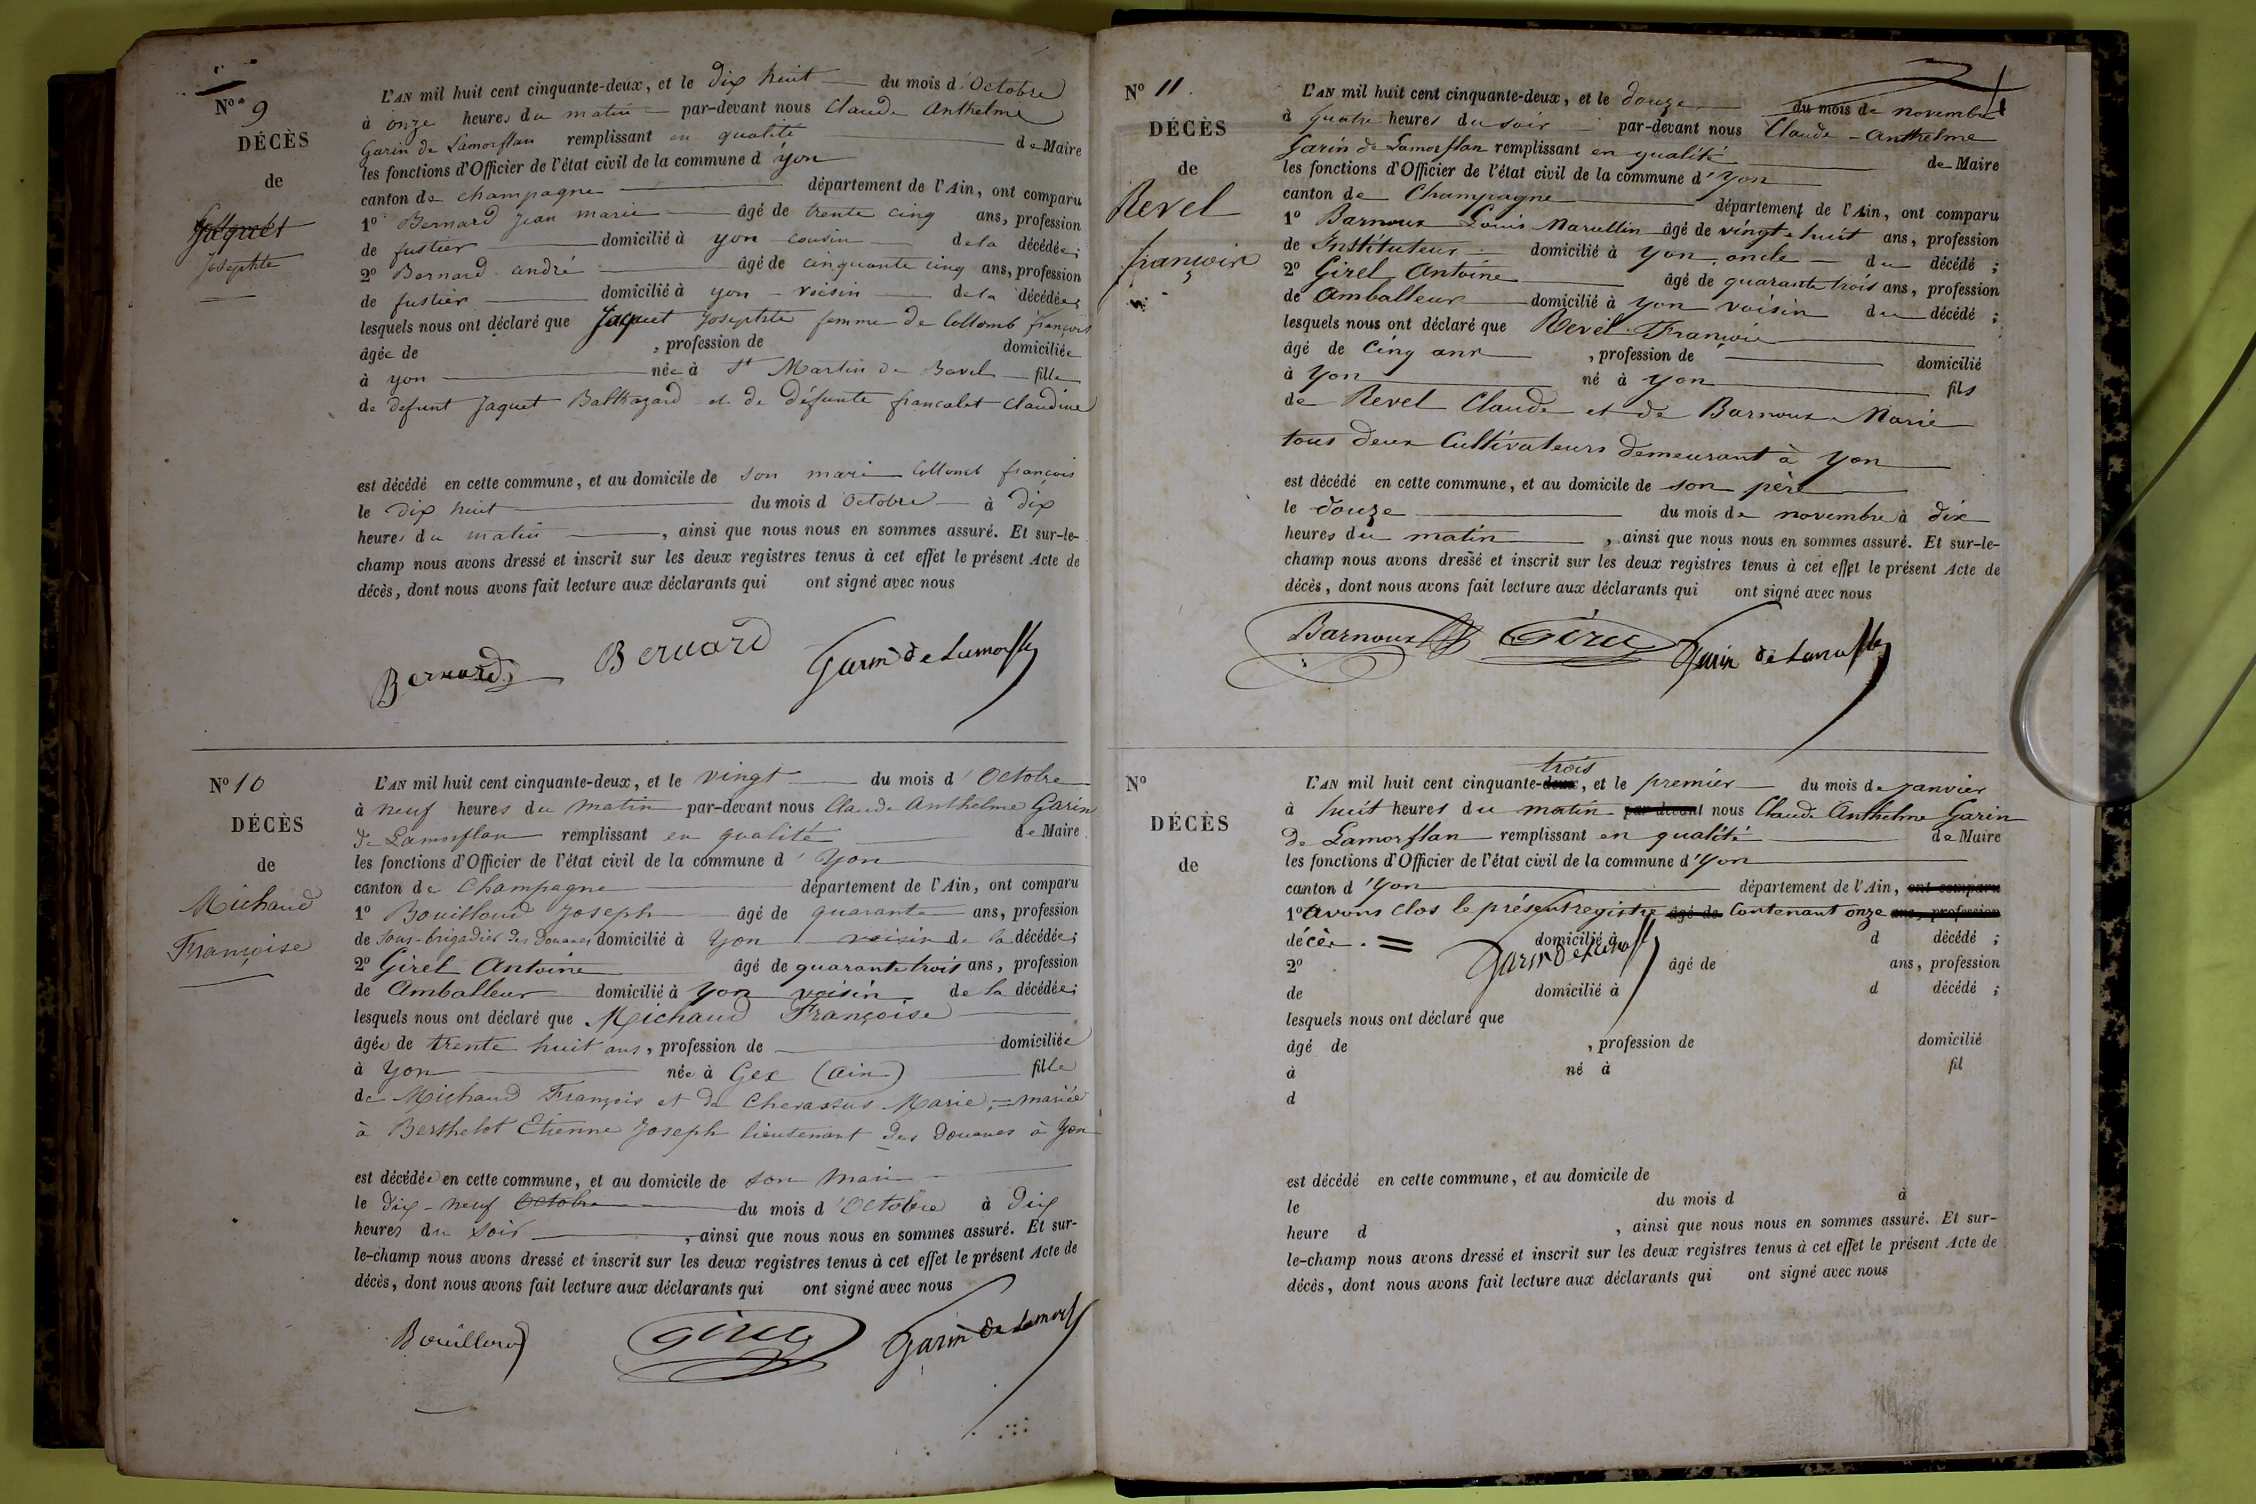 N° 9
DÉCÈS
de
Jaquet
Josephte
L'AN mil huit cent cinquante-deux, et le dix huit du mois d'Octobre
à onze heures du matin par-devant nous Claude Anthelme
Garin de Lamorflan remplissant en qualité de Maire
les fonctions d'Officier de l'état civil de la commune d'yon
canton de champagne département de l'Ain, ont comparu
1° Bernard Jean marie âgé de trente cinq ans, profession
de fustier domicilié à yon cousin de la décédée;
2° Bernard andré âgé de cinquante cinq ans, profession
de fustier domicilié à yon voisin de la décédée;
lesquels nous ont déclaré que Jaquet Josephte femme de Collomb françois
âgée de , profession de domiciliée
à yon née à St Martin de Bavel fille
de defunt Jaquet Balthazard et de Défunte francalet Claudine
est décédé en cette commune, et au domicile de son mari Collomb françois
le dix huit du mois d'Octobre à dix
heures du matin , ainsi que nous nous en sommes assuré. Et sur-le-
champ nous avons dressé et inscrit sur les deux registres tenus à cet effet le présent Acte de
décès, dont nous avons fait lecture aux déclarants qui ont signé avec nous
Bernard Bernard Garin de Lamorflan
N° 10
DÉCÈS
de
Michaud
Françoise
L'AN mil huit cent cinquante-deux, et le vingt du mois d'Octobre
à neuf heures du matin par-devant nous Claude Anthelme Garin
de Lamorflan remplissant en qualité de Maire
les fonctions d'Officier de l'état civil de la commune d'Yon
canton de Champagne département de l'Ain, ont comparu
1° Bouilloud Joseph âgé de quarante ans, profession
de sous-brigadier des Douanes domicilié à Yon voisin de la décédée;
2° Girel Antoine âgé de quarante trois ans, profession
de Amballeur domicilié à Yon voisin de la décédée;
lesquels nous ont déclaré que Michaud Françoise
âgée de trente huit ans, profession de domiciliée
à Yon née à Gex (ain) fille
de Michaud François et de Cherassus Marie, = mariée
à Berthelot Etienne Joseph lieutenant des Douanes à Yon
est décédée en cette commune, et au domicile de son Mari
le dix-neuf Octobre du mois d'Octobre à dix
heures du soir , ainsi que nous nous en sommes assuré. Et sur-
le-champ nous avons dressé et inscrit sur les deux registres tenus à cet effet le présent Acte de
décès, dont nous avons fait lecture aux déclarants qui ont signé avec nous
Bouilloud Girel Garin de Lamorfl
N° 11.
DÉCÈS
de
Revel
françois
L'AN mil huit cent cinquante-deux, et le douze du mois de novembre
à quatre heures du soir par-devant nous Claude-Anthelme
Garin de Lamorflan remplissant en qualité de Maire
les fonctions d'Officier de l'état civil de la commune d'Yon
canton de Champagne département de l'Ain, ont comparu
1° Barnoux Louis Marcellin âgé de vingt-huit ans, profession
de Instituteur domicilié à yon, oncle du décédé;
2° Girel Antoine âgé de quarante trois ans, profession
de Amballeur domicilié à yon voisin du décédé;
lesquels nous ont déclaré que Revel François
âgé de cinq ans , profession de domicilié
à Yon né à Yon fils
de Revel Claude et de Barnoux Marie
tous deux Cultivateurs demeurant à Yon
est décédé en cette commune, et au domicile de son père
le douze du mois de novembre à dix
heures du matin , ainsi que nous nous en sommes assuré. Et sur-le-
champ nous avons dressé et inscrit sur les deux registres tenus à cet effet le présent Acte de
décès, dont nous avons fait lecture aux déclarants qui ont signé avec nous
Barnoux Girel Garin de Lamorfl
N°
DÉCÈS
de
trois
L'AN mil huit cent cinquante-deux, et le premier du mois de janvier
à huit heures du matin par-devant nous Claude Anthelme Garin
de Lamorflan remplissant en qualité de Maire
les fonctions d'Officier de l'état civil de la commune d'Yon
canton d'Yon département de l'Ain, ont comparu
1° avons clos le présent registre âgé de contenant onze ans, profession
décès. = domicilié à d décédé;
Garin de Lamorfl
2° âgé de ans, profession
de domicilié à d décédé;
lesquels nous ont déclaré que
âgé de , profession de domicilié
à né à fil
d
est décédé en cette commune, et au domicile de
le du mois d à
heure d , ainsi que nous nous en sommes assuré. Et sur-
le-champ nous avons dressé et inscrit sur les deux registres tenus à cet effet le présent Acte de
décès, dont nous avons fait lecture aux déclarants qui ont signé avec nous